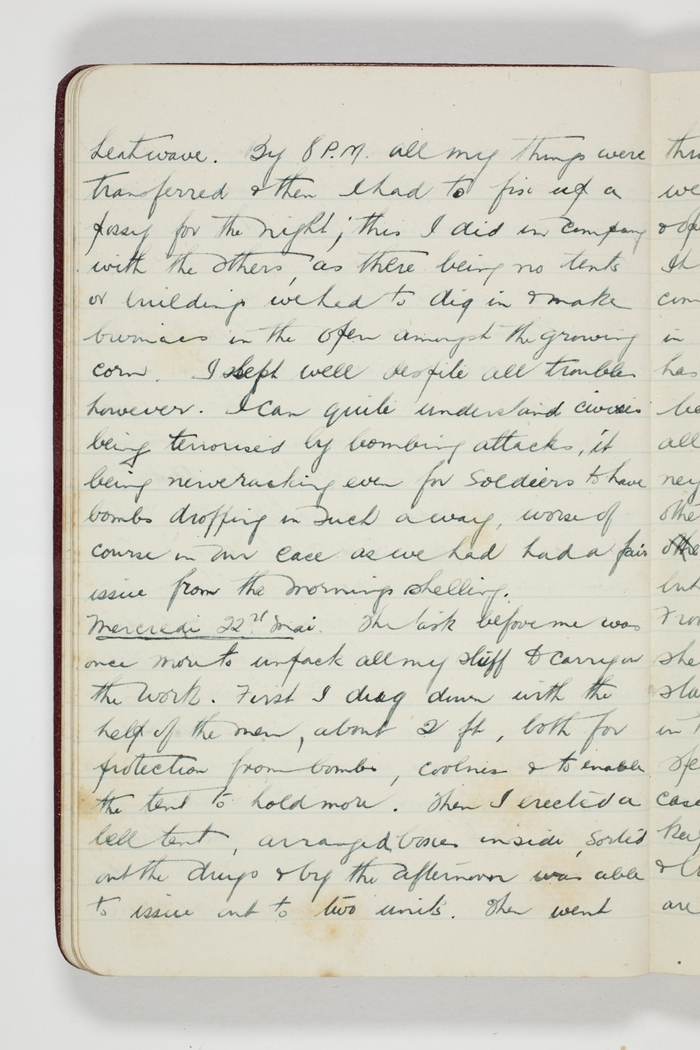 heatwave. By 8 P.M. all my things were
transferred & then I had to fix up a
possy for the night; this I did in company
with the others, as there being no tents
or buildings we had to dig in & make
burrows in the open amongst the growing
corn. I slept well despite all troubles
however. I can quite understand civvies
being terrorised by bombing attacks, it
being nerveracking even for Soldiers to have
bombs dropping in such a way, worse of
course in our case as we had had a fair
issue from the mornings shelling.
Mercredi 22nd Mai. The task before me was
once more to unpack all my stuff & carry on
the work. First I dug down with the
help of the men, about 2 ft, both for
protection from bombs, coolness & to enable
the tent to hold more. Then I erected a
bell tent, arranged boxes inside, sorted
out the drugs & by the afternoon was able
to issue out to two units. Then went
thr
we
& op
It
com
in
has
be
all
ney
othe
but
from
she
sta
in
Ope
case
Kee
& b
are